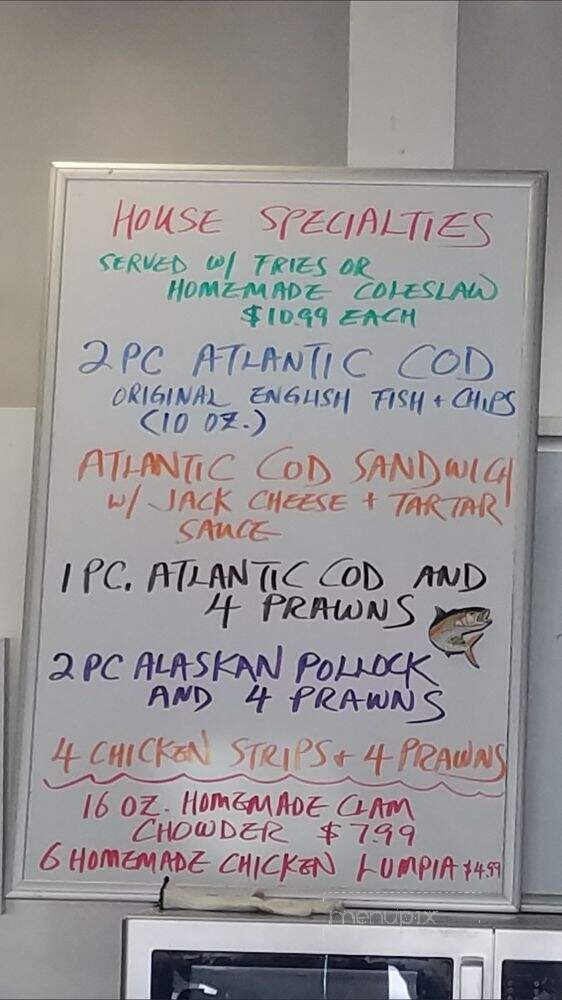 HOUSE SPECIALTIES
SERVED W/ FRIES OR
HOMEMADE COLESLAW
$10.99 EACH
2 PC ATLANTIC COD
ORIGINAL ENGLISH FISH + CHIPS
(10 OZ.)
ATLANTIC COD SANDWICH
W/ JACK CHEESE + TARTAR
SAUCE
1 PC. ATLANTIC COD AND
4 PRAWNS
2 PC ALASKAN POLLOCK
AND 4 PRAWNS
4 CHICKEN STRIPS + 4 PRAWNS
16 OZ. HOMEMADE CLAM
CHOWDER $7.99
6 HOMEMADE CHICKEN LUMPIA $4.99
menupix